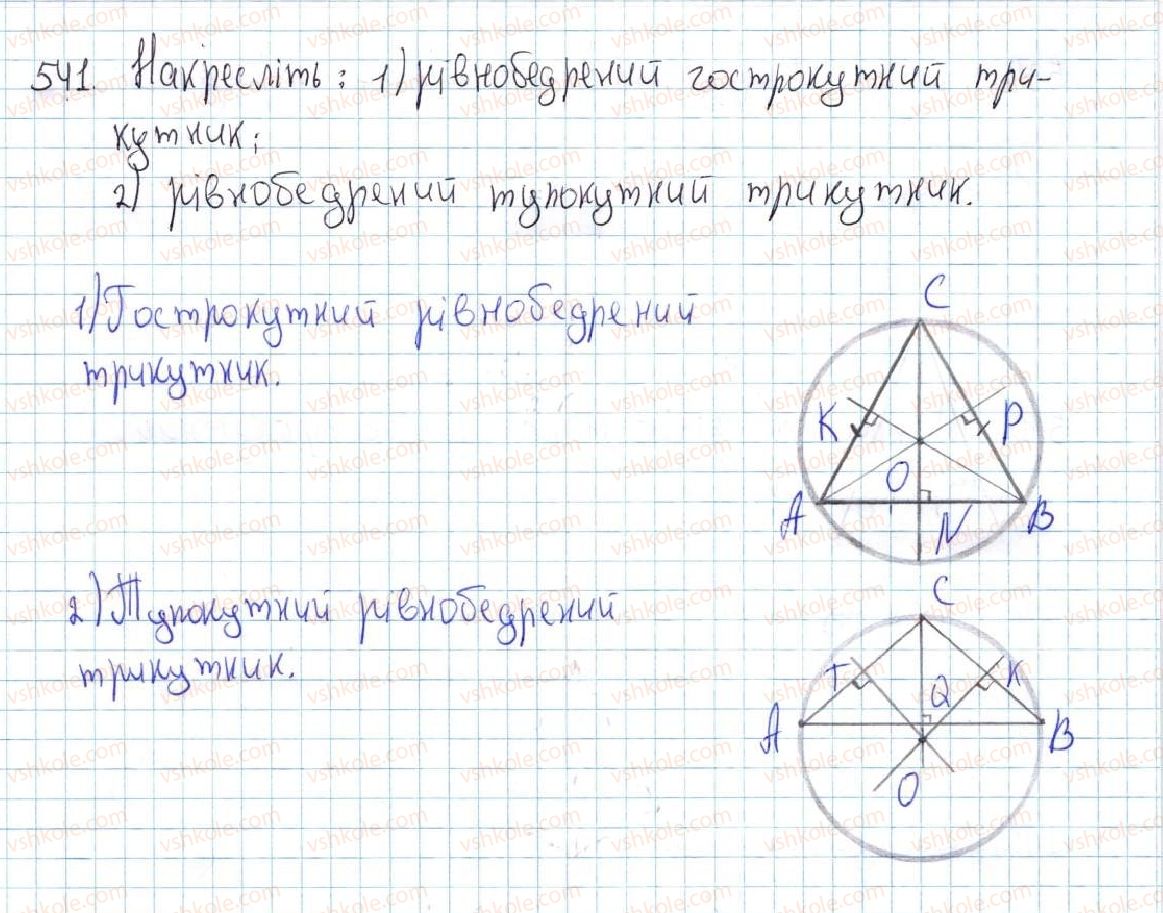 541. Накресліть: 1) рівнобедрений гострокутний три-
кутник;
2) рівнобедрений тупокутний трикутник.
1) Гострокутний рівнобедрений
трикутник.
C
K
P
O
A
N
B
2) Тупокутний рівнобедрений
трикутник.
C
T
Q
K
A
B
O
vshkole.com